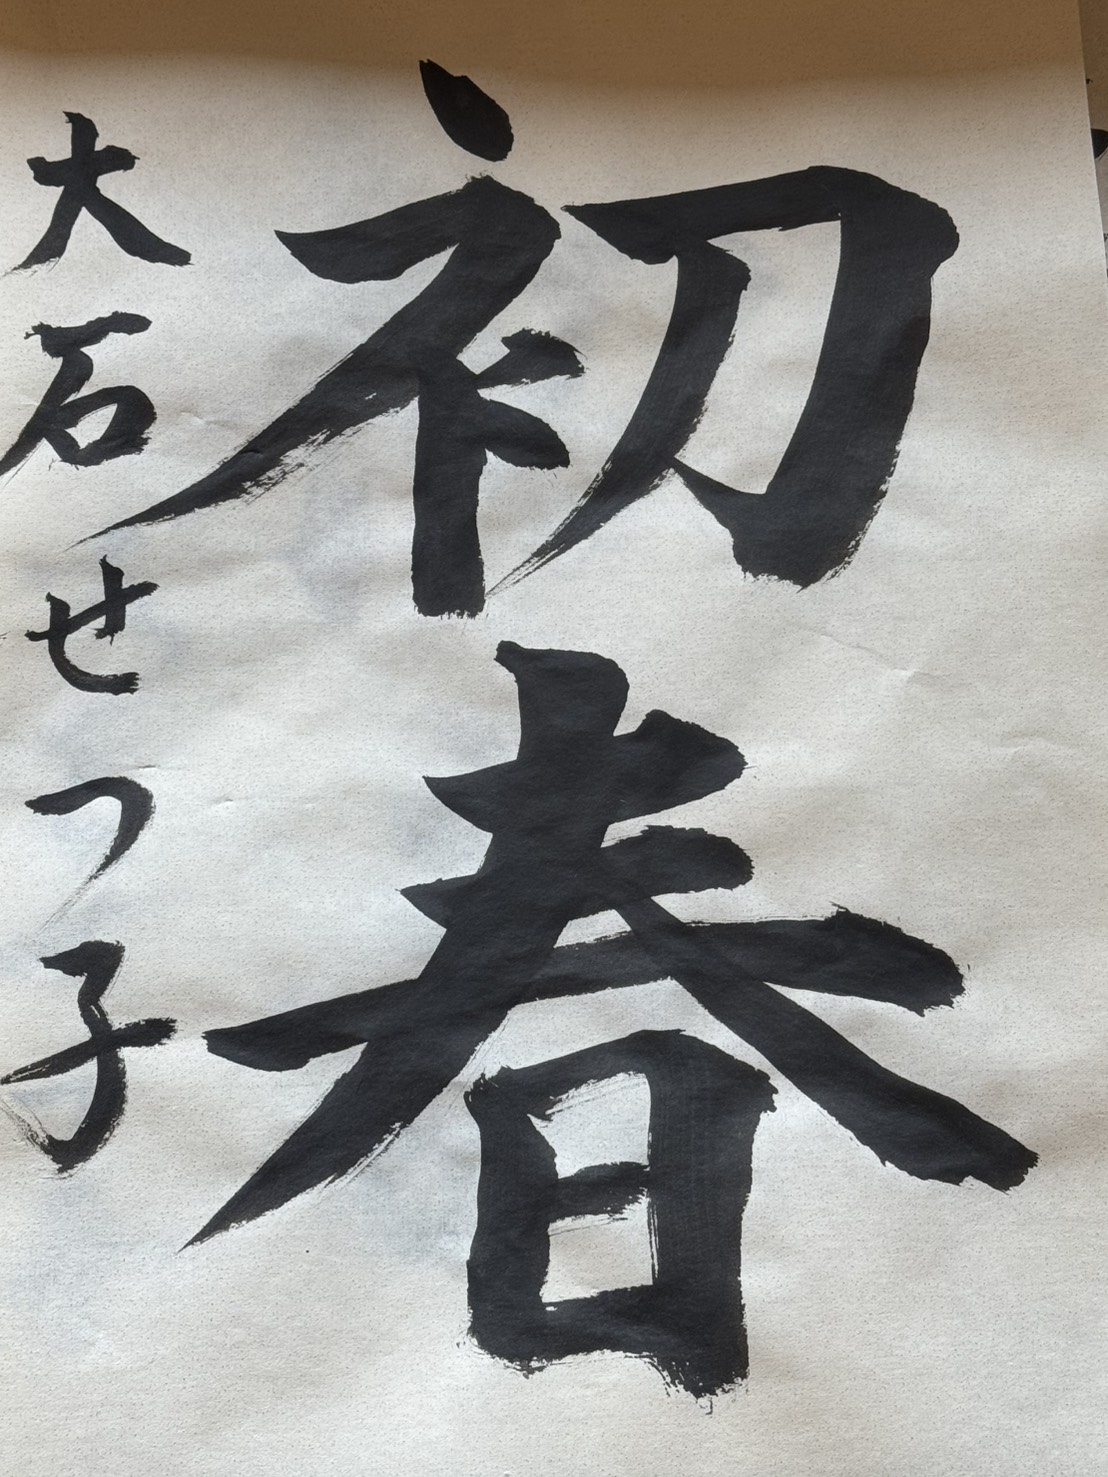 初春
大石せつ子